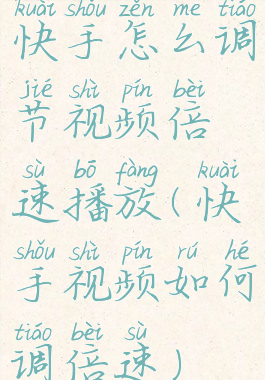 kuài shǒu zěn me tiáo
快手怎么调
jié shì pín bèi
节视频倍
sù bō fàng kuài
速播放(快
shǒu shì pín rú hé
手视频如何
tiáo bèi sù
调倍速)